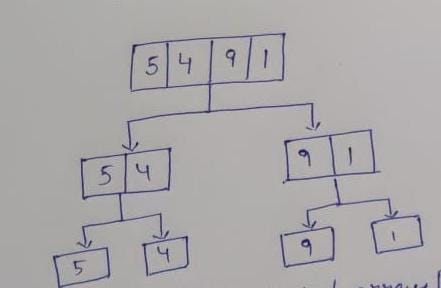 5 4 9 1
5 4 9 1
5 4 9 1